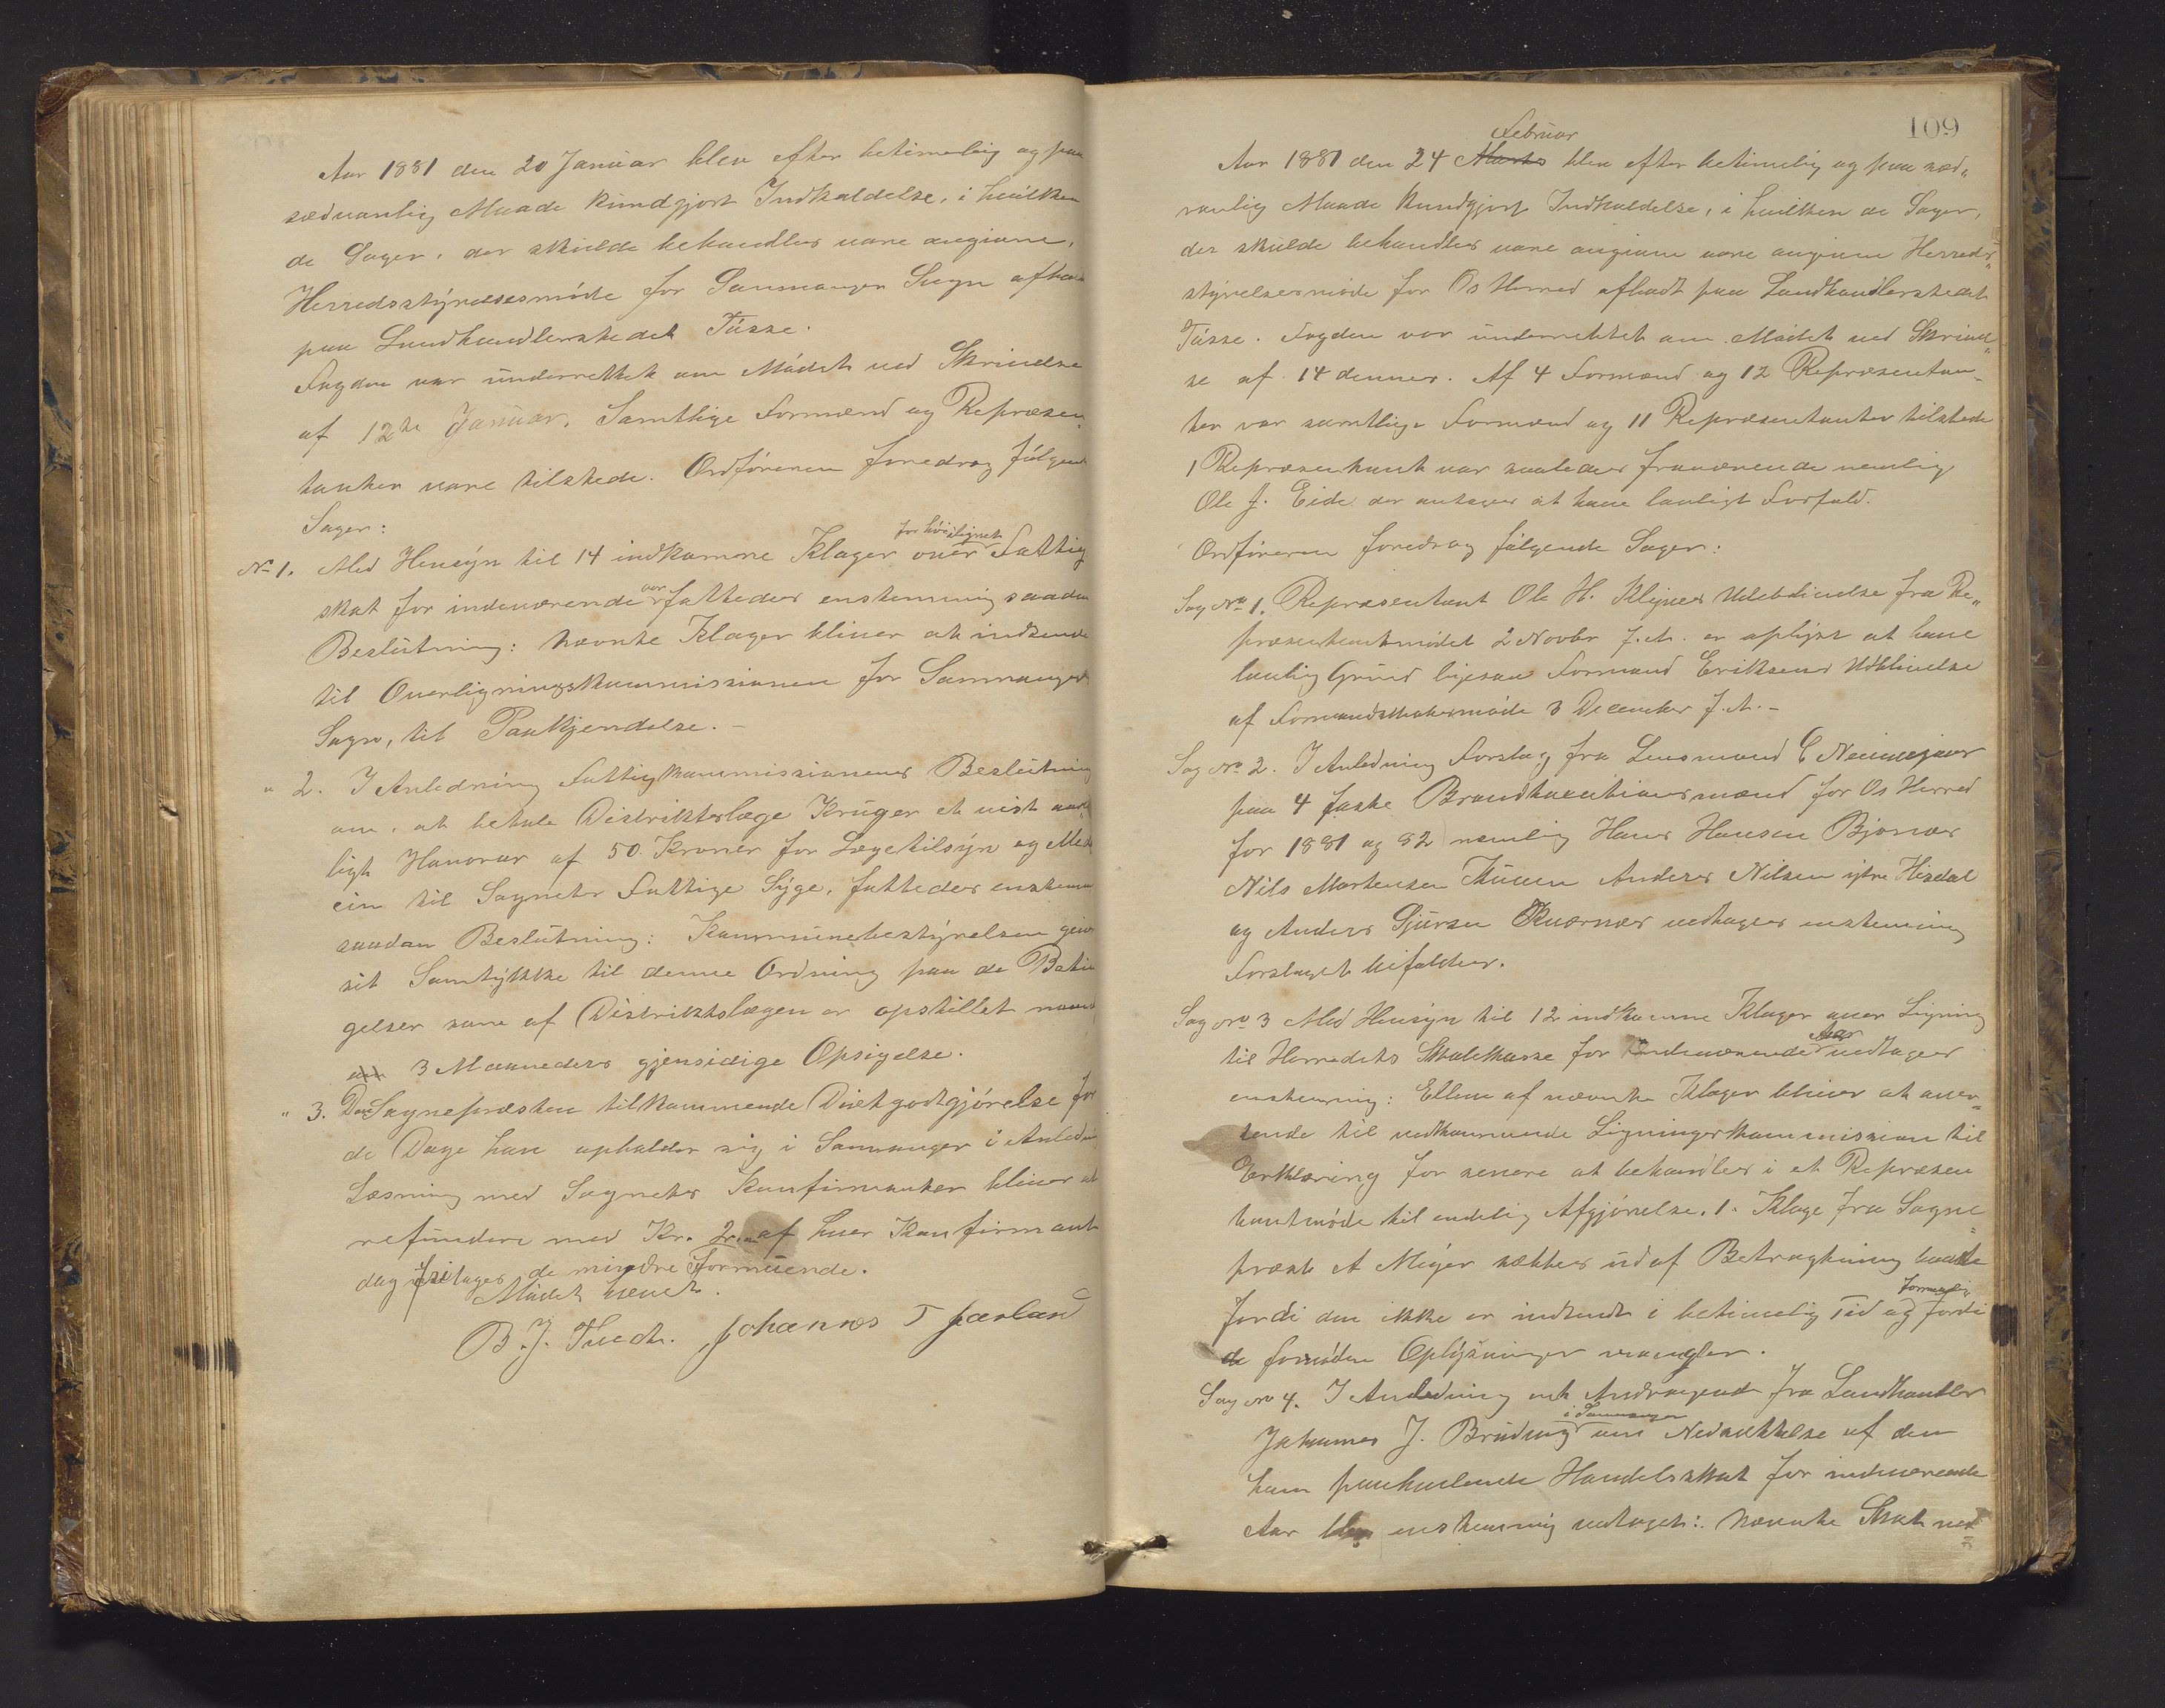 Aar 1881 den 20 Januar blev efter betimelig og paa
sædvanlig Maade kundgjort Indkaldelse, i hvilken
de Sager, der skulde behandles vare angivne,
Herredsstyrelsesmøde for Samnanger Sogn afholdt
paa Landhandlerstedet Tüsse.
Fogden var underrettet om Mødet ved Skrivelse
af 12te Januar. Samtlige Formænd og Repræsen„
tanter vare tilstede. Ordføreren foredrog følgende
Sager:
No 1. Med Hensyn til 14 indkomne Klager over for høi lignet Fattig
skat for indeværende Aar fattedes enstemmig saadan
Beslutning: Nævnte Klager bliver at indsende
til Overligningskommissionen for Samnanger
Sogn, til Paakjendelse. -
" 2. I Anledning Fattigkommissionens Beslutning
om, at betale Distriktslæge Krüger et vist aar
ligt Honorar af 50 Kroner for Lægetilsyn og Medi
cin til Sognets Fattige Syge, fattedes enstemmig
saadan Beslutning: Kommunebestyrelsen giver
sit Samtykke til denne Ordning paa de Betin
gelser som af Distriktslægen er opstillet
3 Maaneders gjensidige Opsigelse.
" 3. Den Sognepræsten tilkommende Diætgodtgjørelse for
de Dage han opholder sig i Samnanger i Anledning
Læsning med Sognets Konfirmanter bliver at
refundere med Kr. 2 af hver Konfirmant
dog fritages de mindre formuende.
Mødet hævet.
B. J. Johannes T Jærland
109
Februar
Aar 1881 den 24 Marts blev efter betimelig og paa sæd„
vanlig Maade kundgjort Indkaldelse, i hvilken de Sager,
der skulde behandles vare angivne vare angivne Herreds„
styrelsesmøde for Os Herred afholdt paa Landhandlerstedet
Tüsse. Fogden var underrettet om Mødet ved Skrivel„
se af 14 dennes. Af 4 Formænd og 12 Repræsentan„
ter var samtlige Formænd og 11 Repræsentanter tilstede
1 Repræsentant var saaledes fraværende nemlig
Ole J. Eide der antages at have lovligt Forfald.
Ordføreren foredrog følgende Sager:
Sag No 1. Repræsentant Ole H. Udeblivelse fra Re„
præsentantmødet 2 Novbr f. A. er oplyst at have
lovlig Grund ligesaa Formand Eriksens Udblivelse
af Formandskabsmøde 3 December f. A. -
Sag No 2. I Anledning Forslag fra Lensmand
paa 4 faste Brandtaxationsmænd for Os Herred
for 1881 og 82 nemlig Hans Hansen Bjørnes
Nils Mortensen Tüüen Anders Nilsen ytre Hisdal
og Anders Sjursen vedtages enstemmig
Forslaget bifaldes.
Sag No 3 Med Hensyn til 12 indkomne Klager over Ligning
til Herredets Skolekasse for indeværende Aar vedtages
enstemmig: Elleve af nævnte Klager bliver at over„
sende til vedkommende Ligningskommission til
Erklæring for senere at behandles i et Repræsen
tantmøde til endelig Afgjørelse. 1. Klage fra Sogne„
præst A Meyer sættes ud af Betragtning baade
fordi den ikke er indsendt i betimelig Tid og fordi
de fornødne Oplysninger mangler.
Sag No 4. I Anledning et Andragende fra Landhandler
Johannes J. Brüdvig i Samnanger om Nedsættelse af den
ham paahvilende Handelsskat for indeværende
Aar blev enstemmig vedtaget: Nævnte Skat ned„